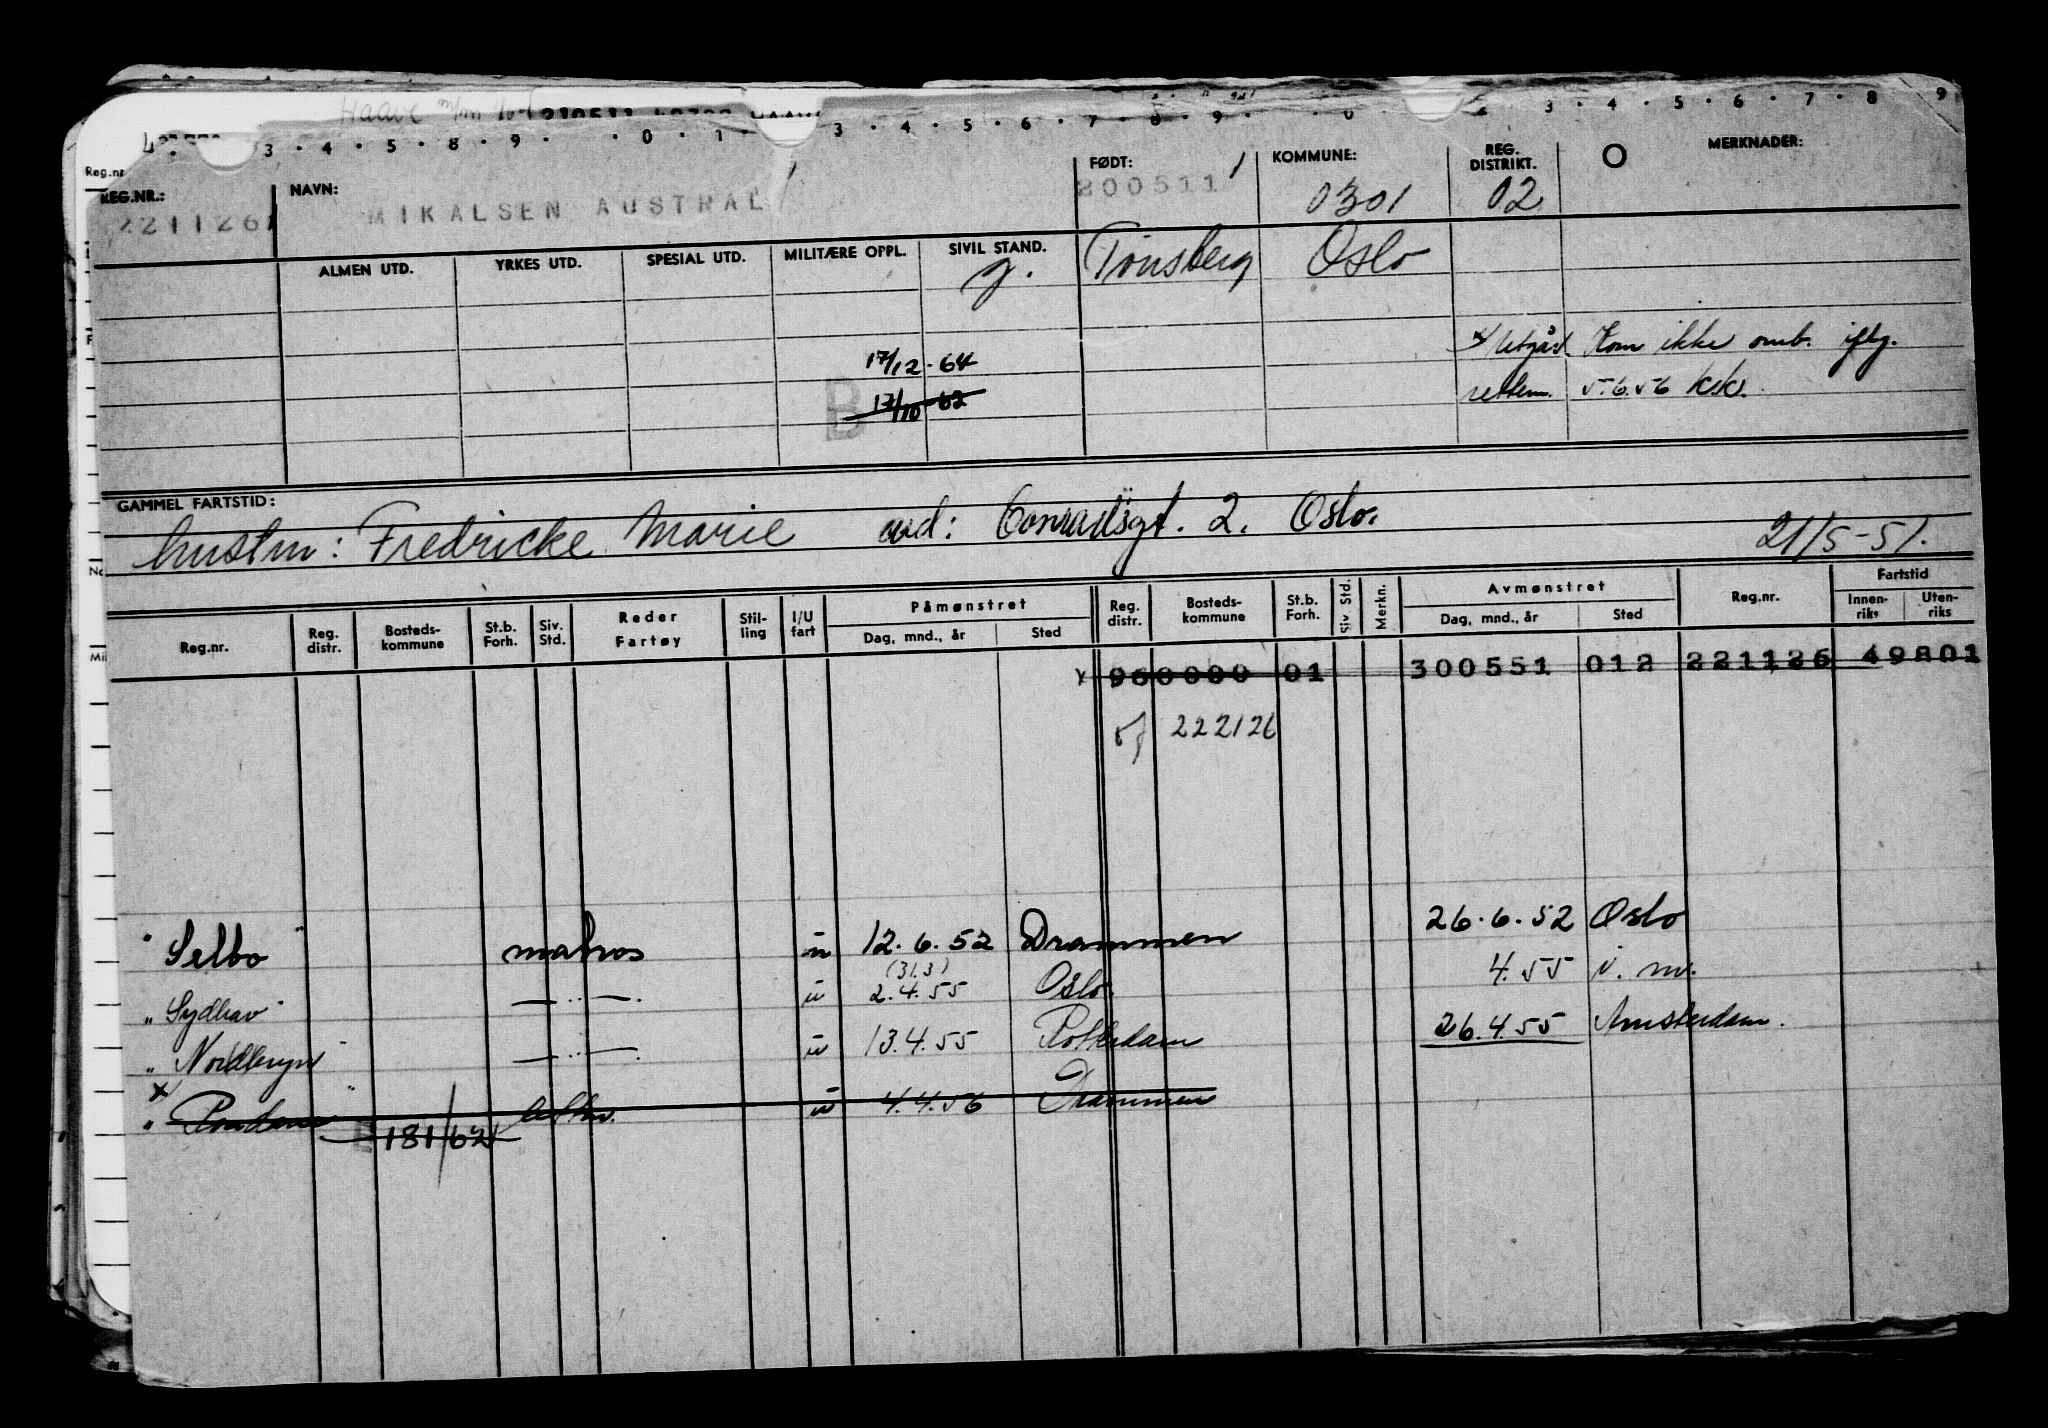 Haave
210511
3 . 4 . 5 . 6 . 7 . 8 9
3 . 4 . 5 . 8 . 9 . . 0 . 1 . 3 . 4 . 5 . 6 . 7 . 8 . 9 . . 0
Reg.nr
REG.NR.: NAVN: FØDT: KOMMUNE: REG. DISTRIKT. MERKNADER:
221126 MIKALSEN AUSTRAL 200511 0301 02
ALMEN UTD. YRKES UTD. SPESIAL UTD. MILITÆRE OPPL. SIVIL STAND. Tønsberg Oslo
g.
17/12 - 64 x/ Utgår. Kom ikke omb. iflg.
B 17/10 - 62 rettem. 5.6.56 kk.
GAMMEL FARTSTID:
hustru: Fredricke Marie ad: Conradsgt. 2. Oslo. 21/5-51.
Påmønstret Avmønstret Fartstid
Reg.nr. Reg. distr. Bosteds- kommune St.b. Forh. Siv. Std. Reder Fartøy Stil- ling I/U fart Dag, mnd., år Sted Reg. distr. Bosteds- kommune St.b. Forh. Siv. Std. Merkn. Dag, mnd., år Sted Reg.nr. Innen- riks Uten- riks
960000 01 300551 012 221126 49801
222126
" Selbo " matros u 12.6.52 Drammen 26.6.52 Oslo
(31.3)
" Sydhav " — " — u 2.4.55 Oslo 4.55
" Nordbryn " — " — u 13.4.55 Rotterdam 26.4.55 Amsterdam.
x
" " u 4.4.56 Drammen
181/62